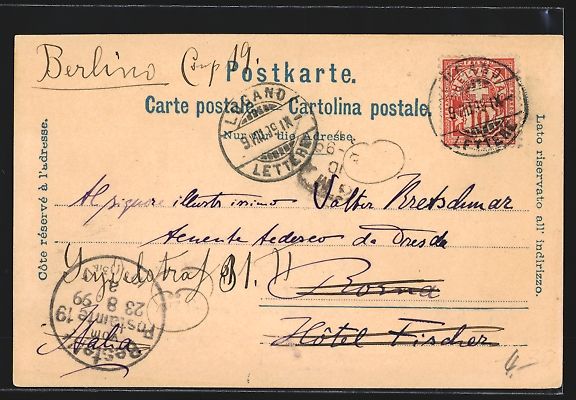 Berlino Cup 19.
Postkarte.
Carte postale. Cartolina postale.
Nur für die Adresse.
Côte réservé à l'adresse.
Lato riservato all' indirizzo.
LUGANO
LETTERE
10
Al signore illustrissimo Valtier Kretschmar
tenente tedesco da Dresda
31. II
Roma
Hôtel Fischer
Italia
Bestellt
vom
Postamte 19
23 8 99
4.-